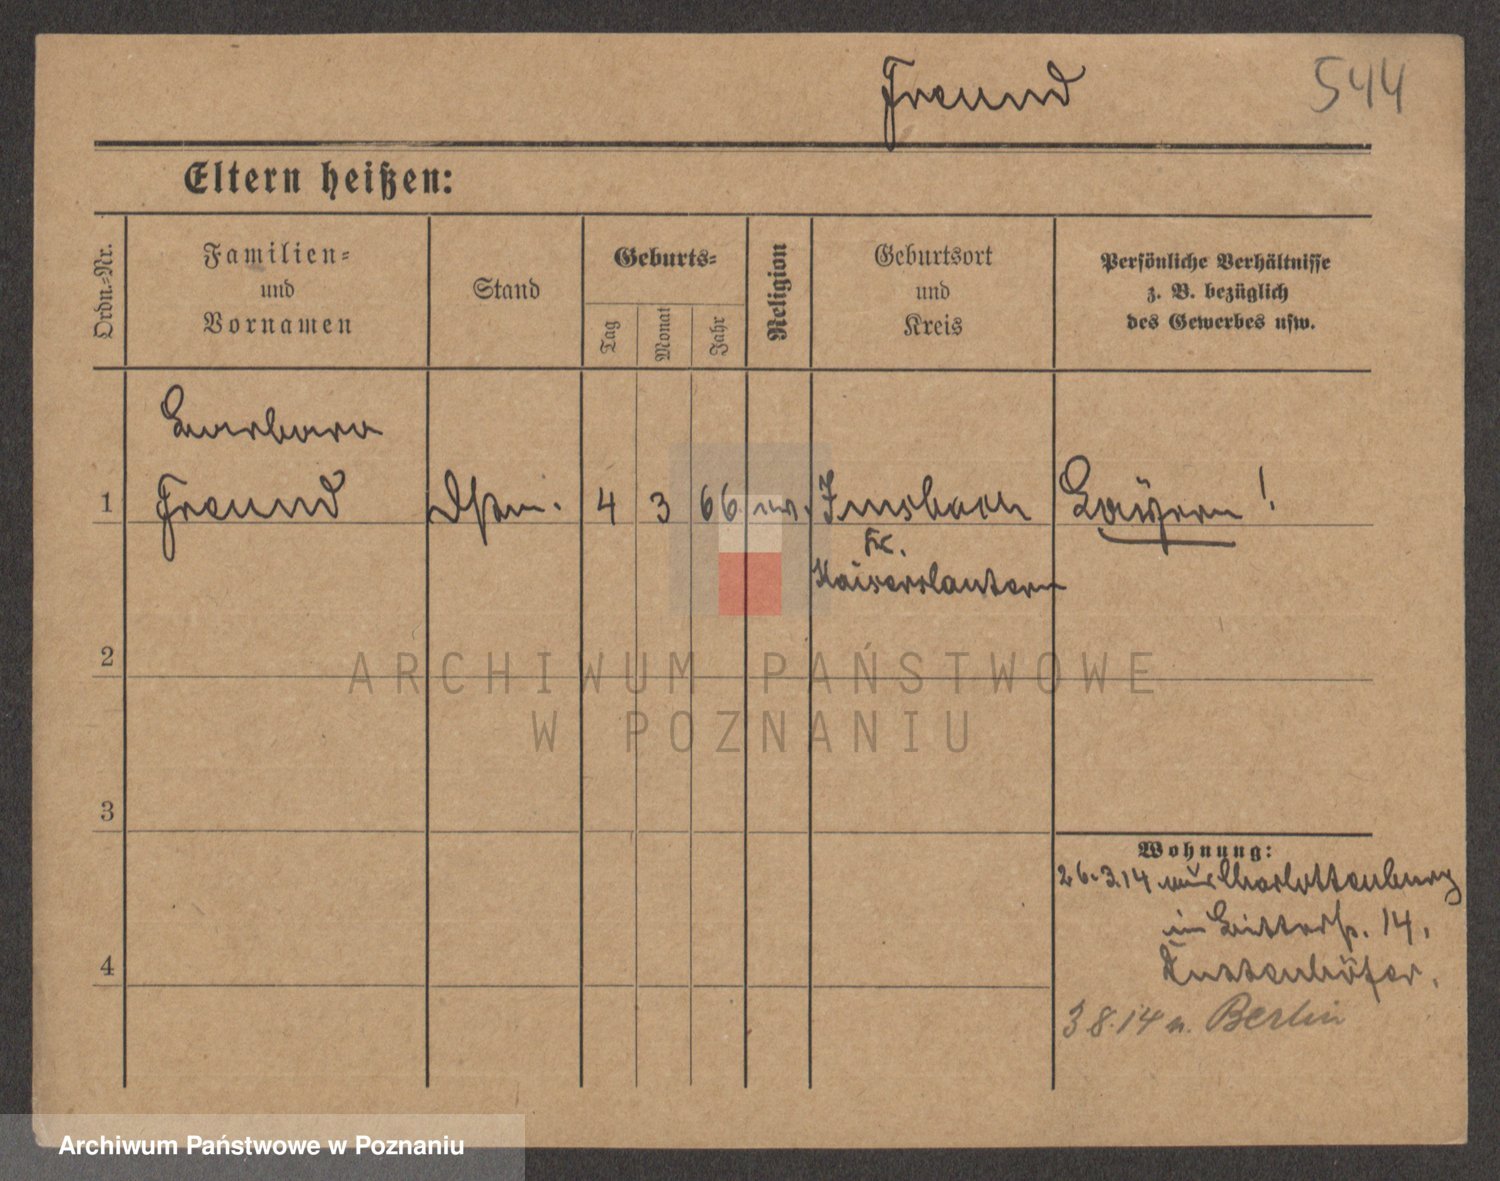 Freund
544
Eltern heißen:
Ordn.-Nr.
Familien-
und
Vornamen
Stand
Geburts-
Tag
Monat
Jahr
Religion
Geburtsort
und
Kreis
Persönliche Verhältnisse
z. B. bezüglich
des Gewerbes usw.
Barbara
1
Freund
4
3
66
ev.
Imsbach
Bayern!
Kr.
Kaiserslautern
2
ARCHIWUM PAŃSTWOWE
W POZNANIU
3
Wohnung:
26.3.14 aus Charlottenburg
in Ritterstr. 14.
4
3 8.14 n. Berlin
Archiwum Państwowe w Poznaniu